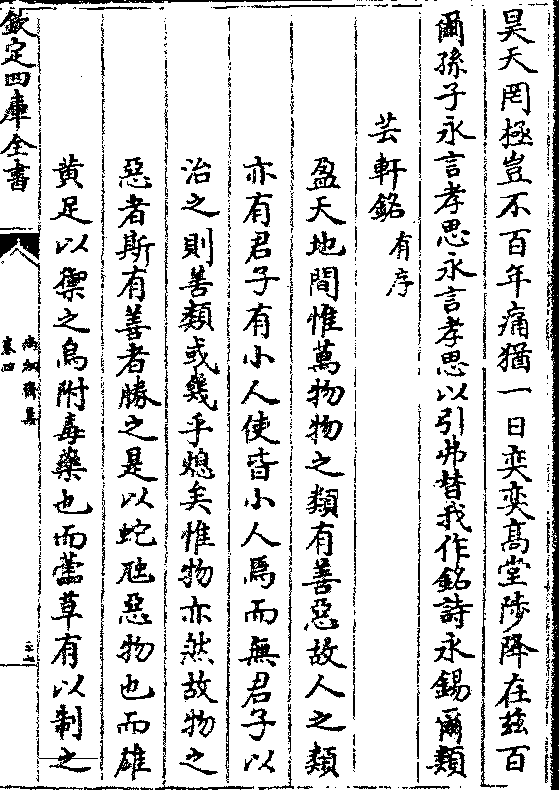 昊天罔極豈不百年痛猶一日奕奕髙堂陟降在兹百
爾孫子永言孝思永言孝思以引弗替我作銘詩永錫爾類
芸軒銘有序
盈天地間惟萬物物之類有善惡故人之類
亦有君子有小人使皆小人焉而無君子以
治之則善類或幾乎熄矣惟物亦然故物之
惡者斯有善者勝之是以蛇虺惡物也而雄
黄足以禦之烏附毒藥也而薷草有以制之
欽定四庫全書
卷四